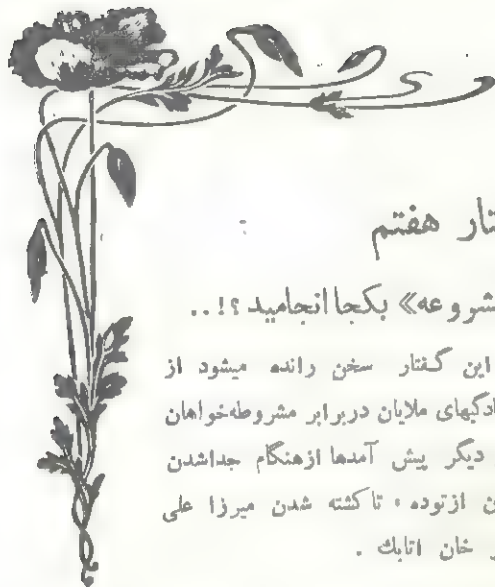 تار هفتم
شروعه» بکجا انجامید ؟!..
این گفتار سخن رانده میشود از
ادگیهای ملایان در برابر مشروطه‌خواهان
دیگر پیش آمدها از هنگام جداشدن
ن از توده ، تا کشته شدن میرزا علی
ر خان اتابك .